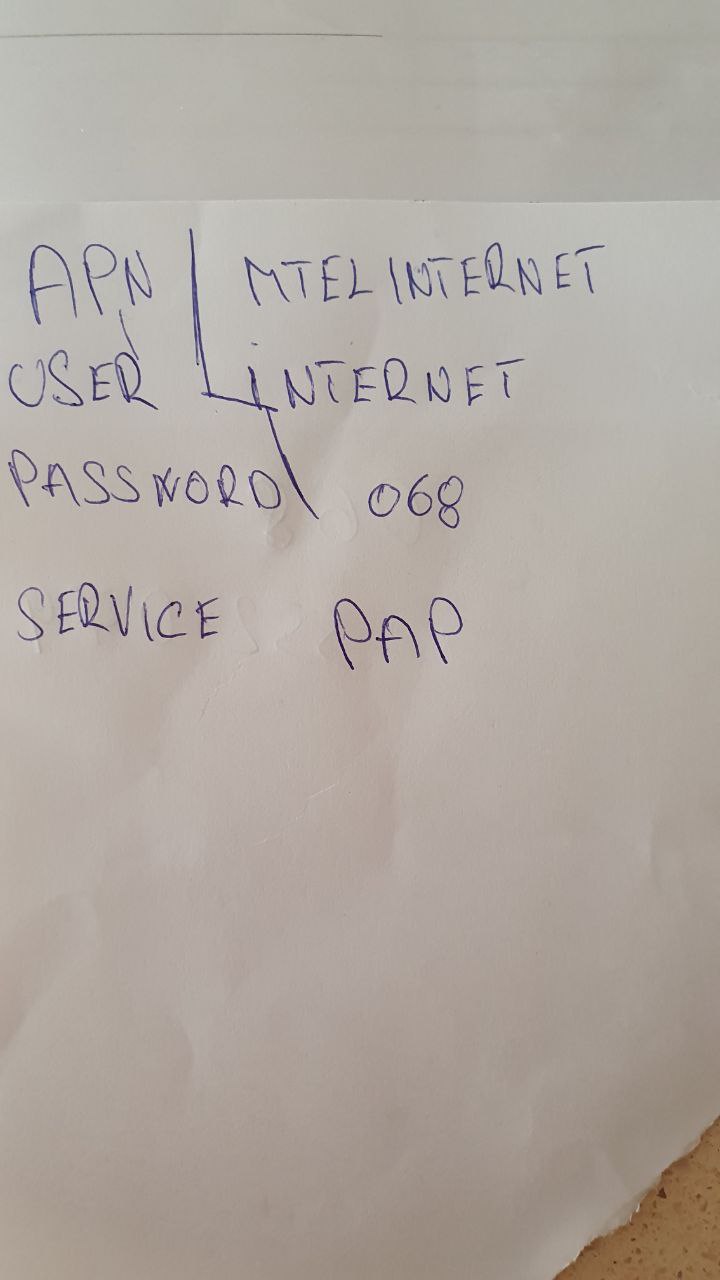 APN MTELINTERNET
USER INTERNET
PASSWORD 068
SERVICE PAP